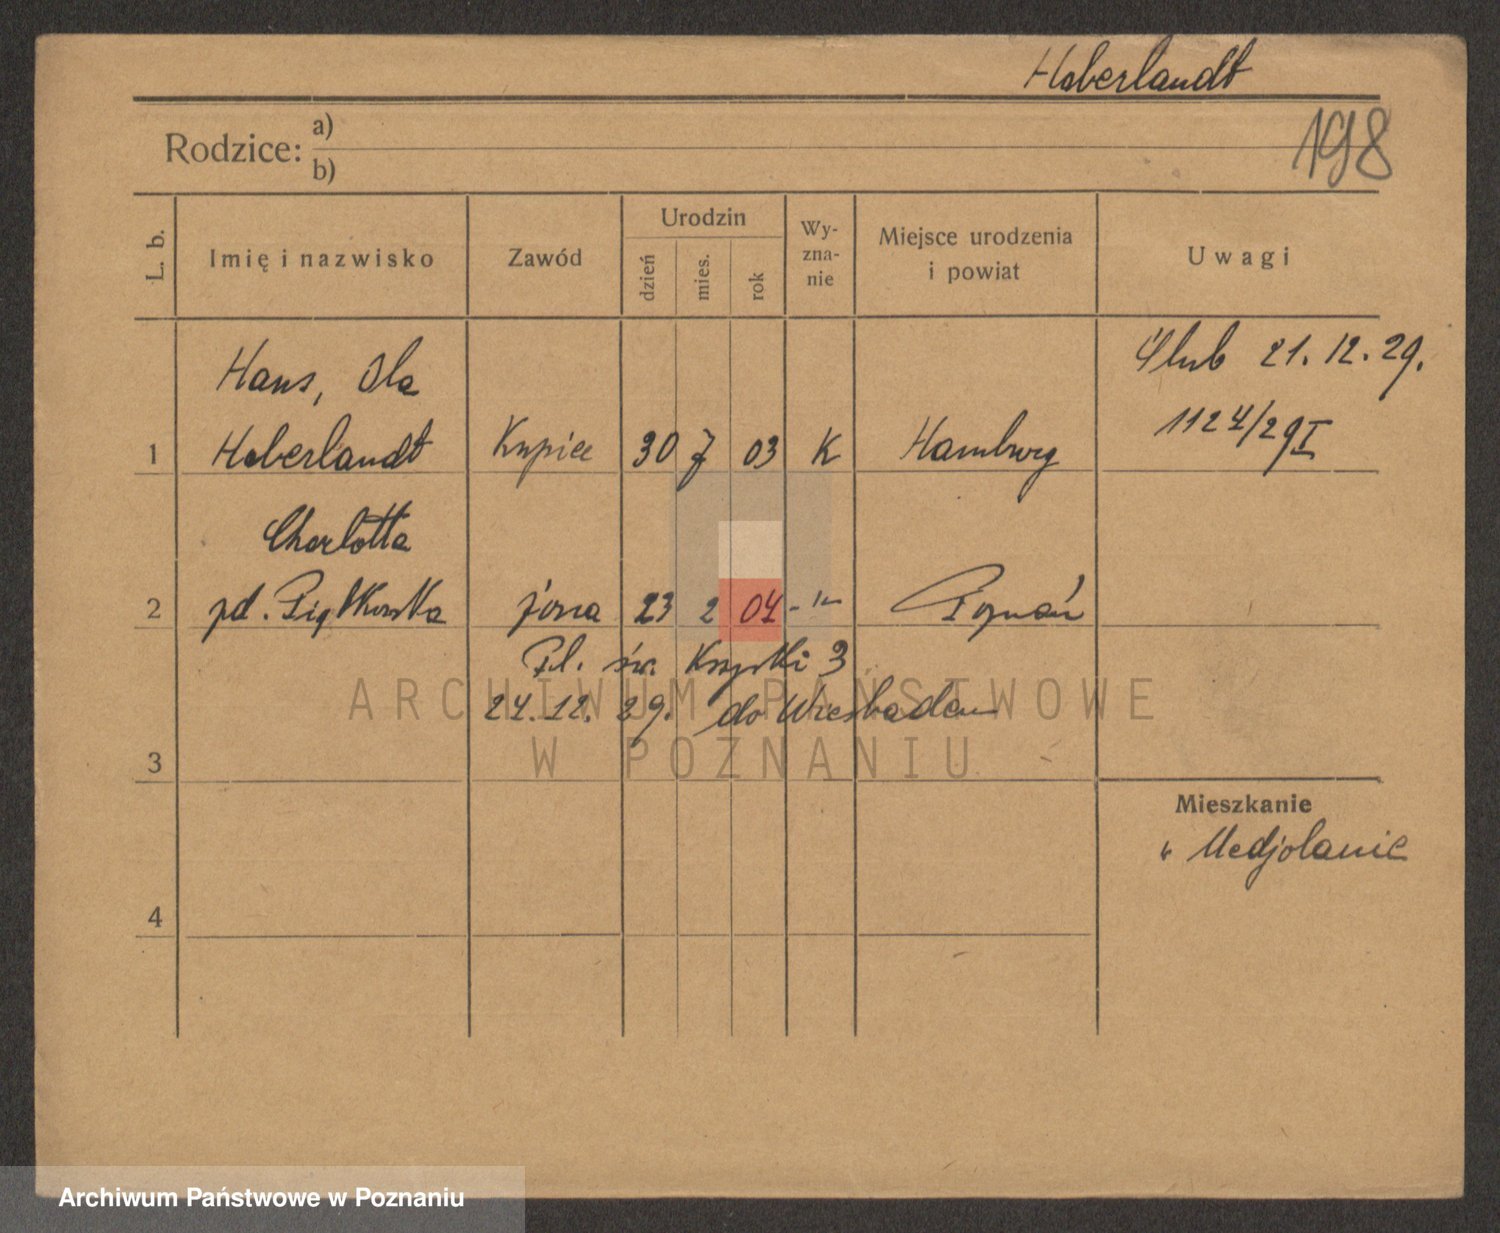 Haberlandt
198
Rodzice: a)
b)
L. b. Imię i nazwisko Zawód Urodzin dzień mies. rok Wy-zna-nie Miejsce urodzenia i powiat Uwagi
Hans, Ola
Ślub 21.12.29.
1124/29 I
1 Haberlandt Kupiec 30 7 03 K Hamburg
Charlotta
2 pd. Piątkowska żona 23 2 04 -"- Poznań
Pl. św. 3
24.12.29. do Wiesbaden
ARCHIWUM PAŃSTWOWE
W POZNANIU
3
Mieszkanie
w Medjolanie
4
Archiwum Państwowe w Poznaniu